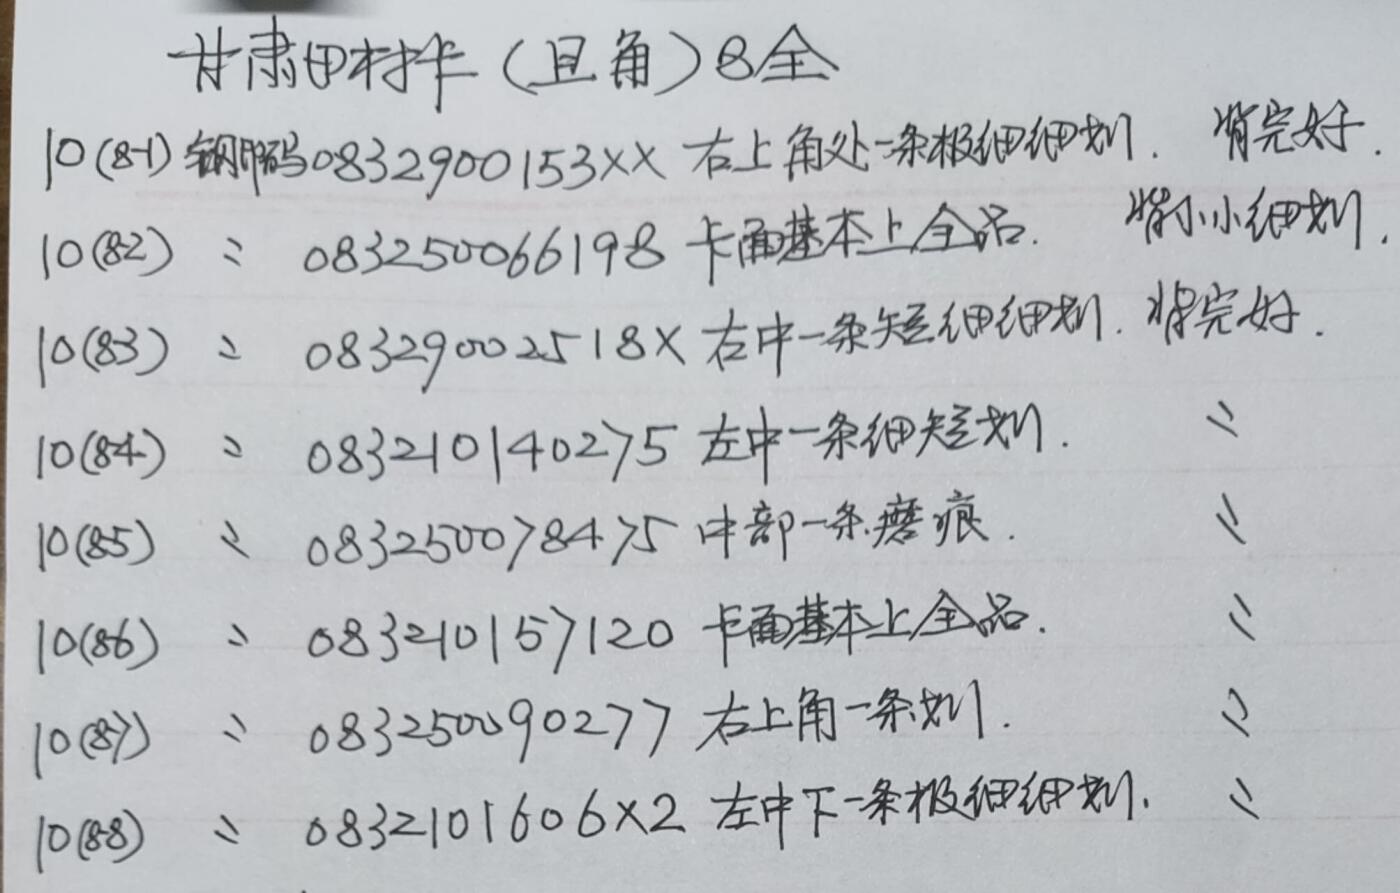 甘肃田村卡（且角）8全
10(8-1) 钢印码0832900153XX 右上角处一条极细细划. 背完好.
10(8-2) 〃 083250066198 卡面基本上全品. 背小小细划.
10(8-3) 〃 08329002518X 右中一条短细细划. 背完好.
10(8-4) 〃 083210140275 左中一条细短划. 〃
10(8-5) 〃 083250078475 中部一条磨痕. 〃
10(8-6) 〃 083210157120 卡面基本上全品. 〃
10(8-7) 〃 083250090277 右上角一条划. 〃
10(8-8) 〃 0832101606X2 左中下一条极细细划. 〃